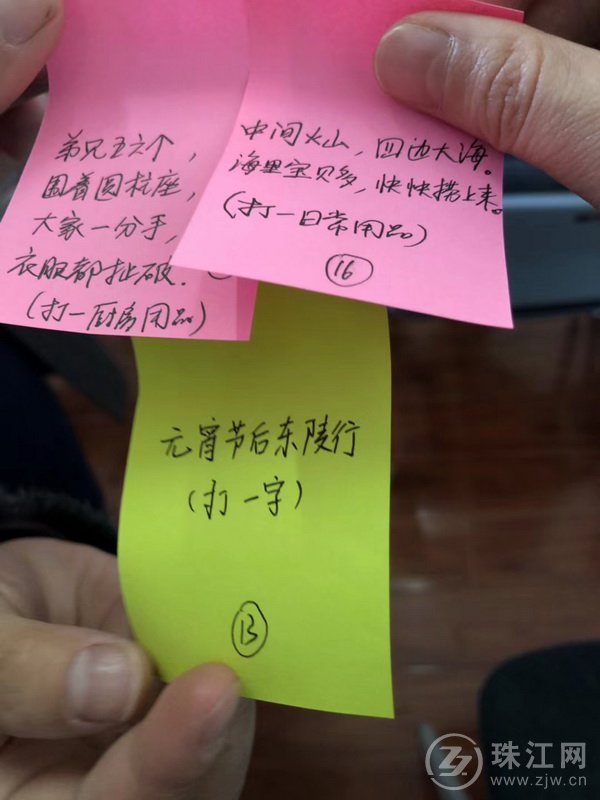 弟兄五六个，
围着圆柱座，
大家一分手，
衣服都扯破．
(打一厨房用品)
中间火山，四边大海。
海里宝贝多，快快捞上来。
(打一日常用品)
16
元宵节后东陵行
(打一字)
13
珠江网
www.zjw.cn